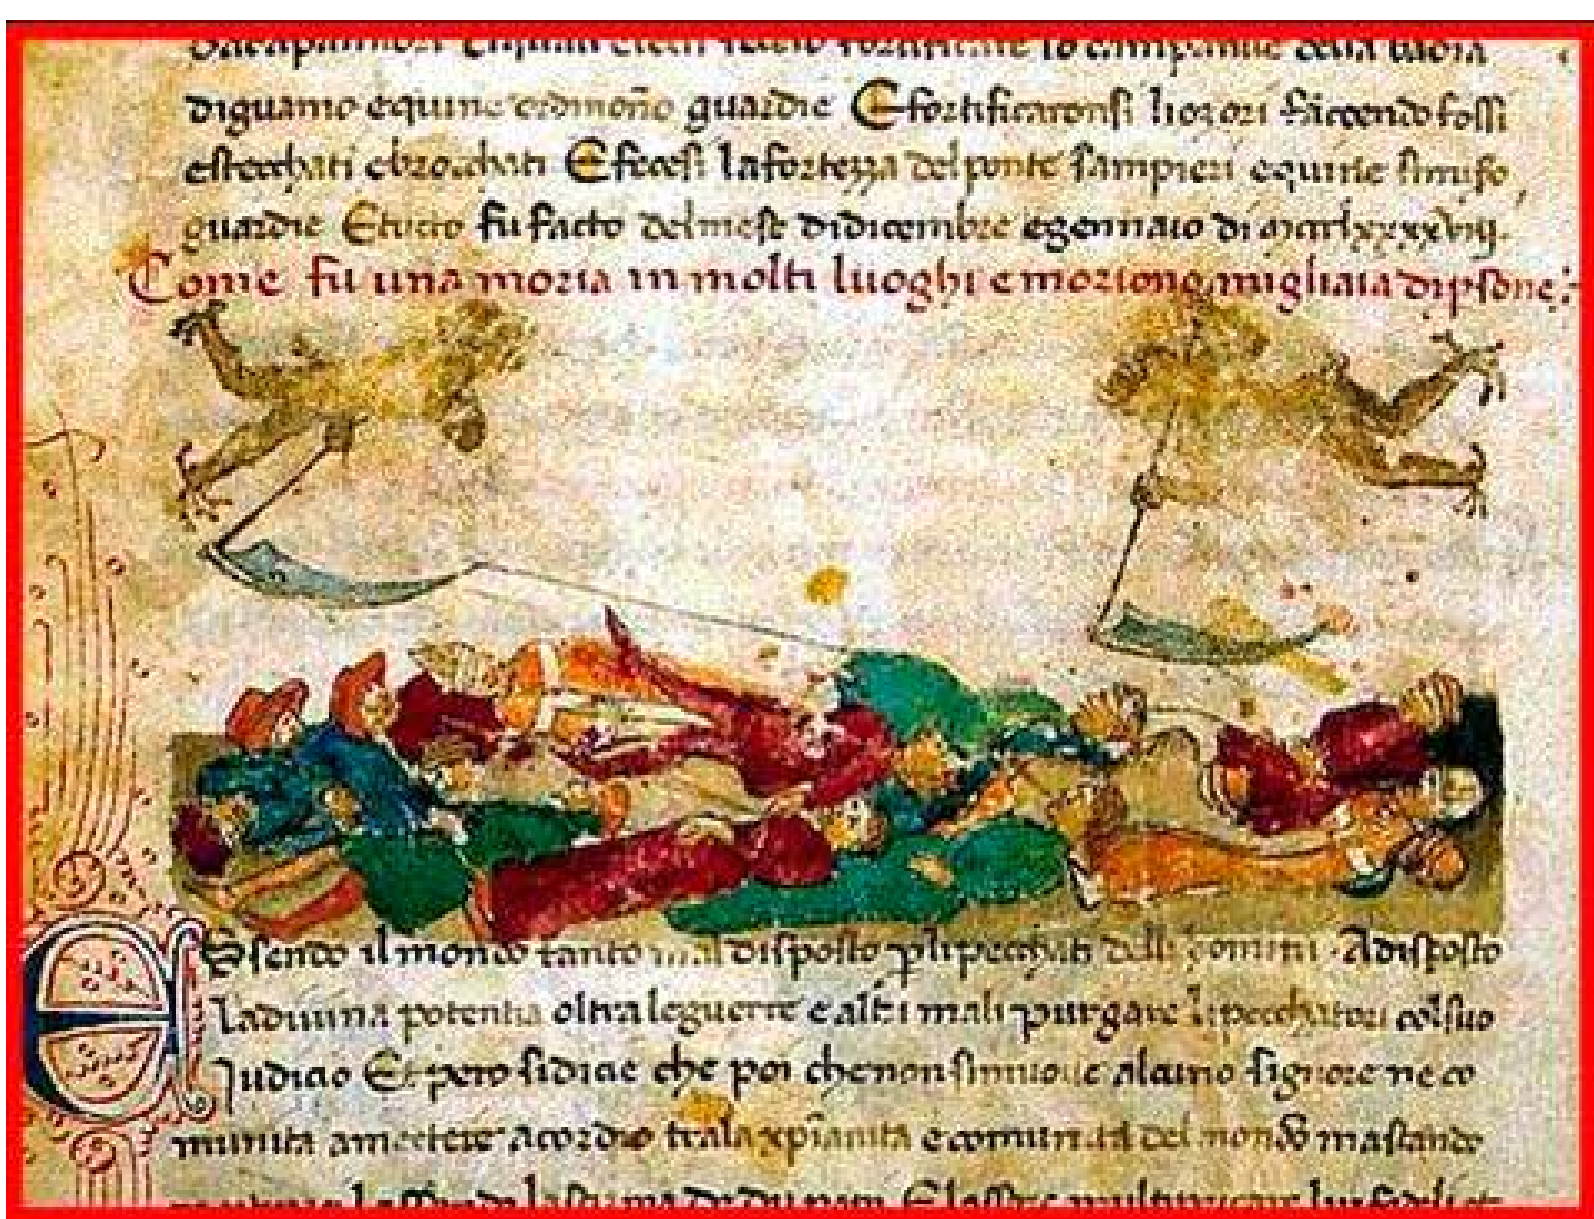 diguamo equine ordinono guardie Efortificaronsi liozori faccendo fossi
estecchati ebrocchati Efecesi lafortezza delponte sampieri equine simise
guardie Etucto fu facto delmese didicembre egennaio di
Come fu una moria in molti luoghi emoriono migliaia dipsone
Essendo il mondo tanto mal disposto plipecchati delli homini Adisposto
Ladiuina potentia oltra leguerre e altri mali purgare li pecchatori colsuo
Judicio Et pero sidice che poi chenon simuoue alcuno signore neco
munita amectere acordio trala xpianita ecomunita del mondo mastando